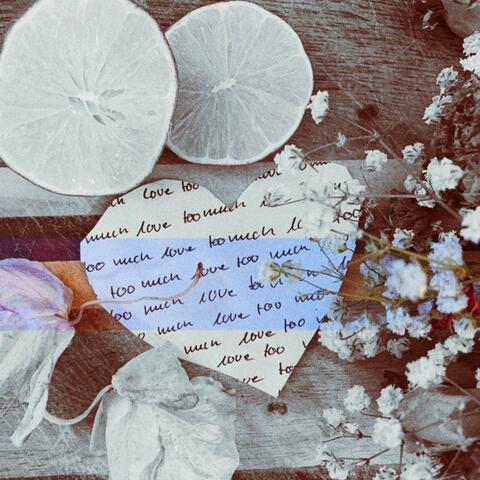 love too
much love too much love
much love too much love too
oo much love too much love
too much love too much
much love too much
too much love too much
much love too
love too